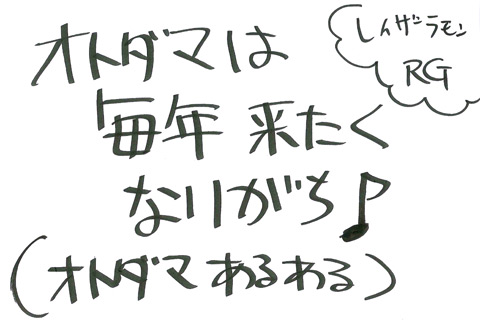 オトダマは
毎年 来たく
なりがち♪
(オトダマ あるある)
レイザーラモン
RG